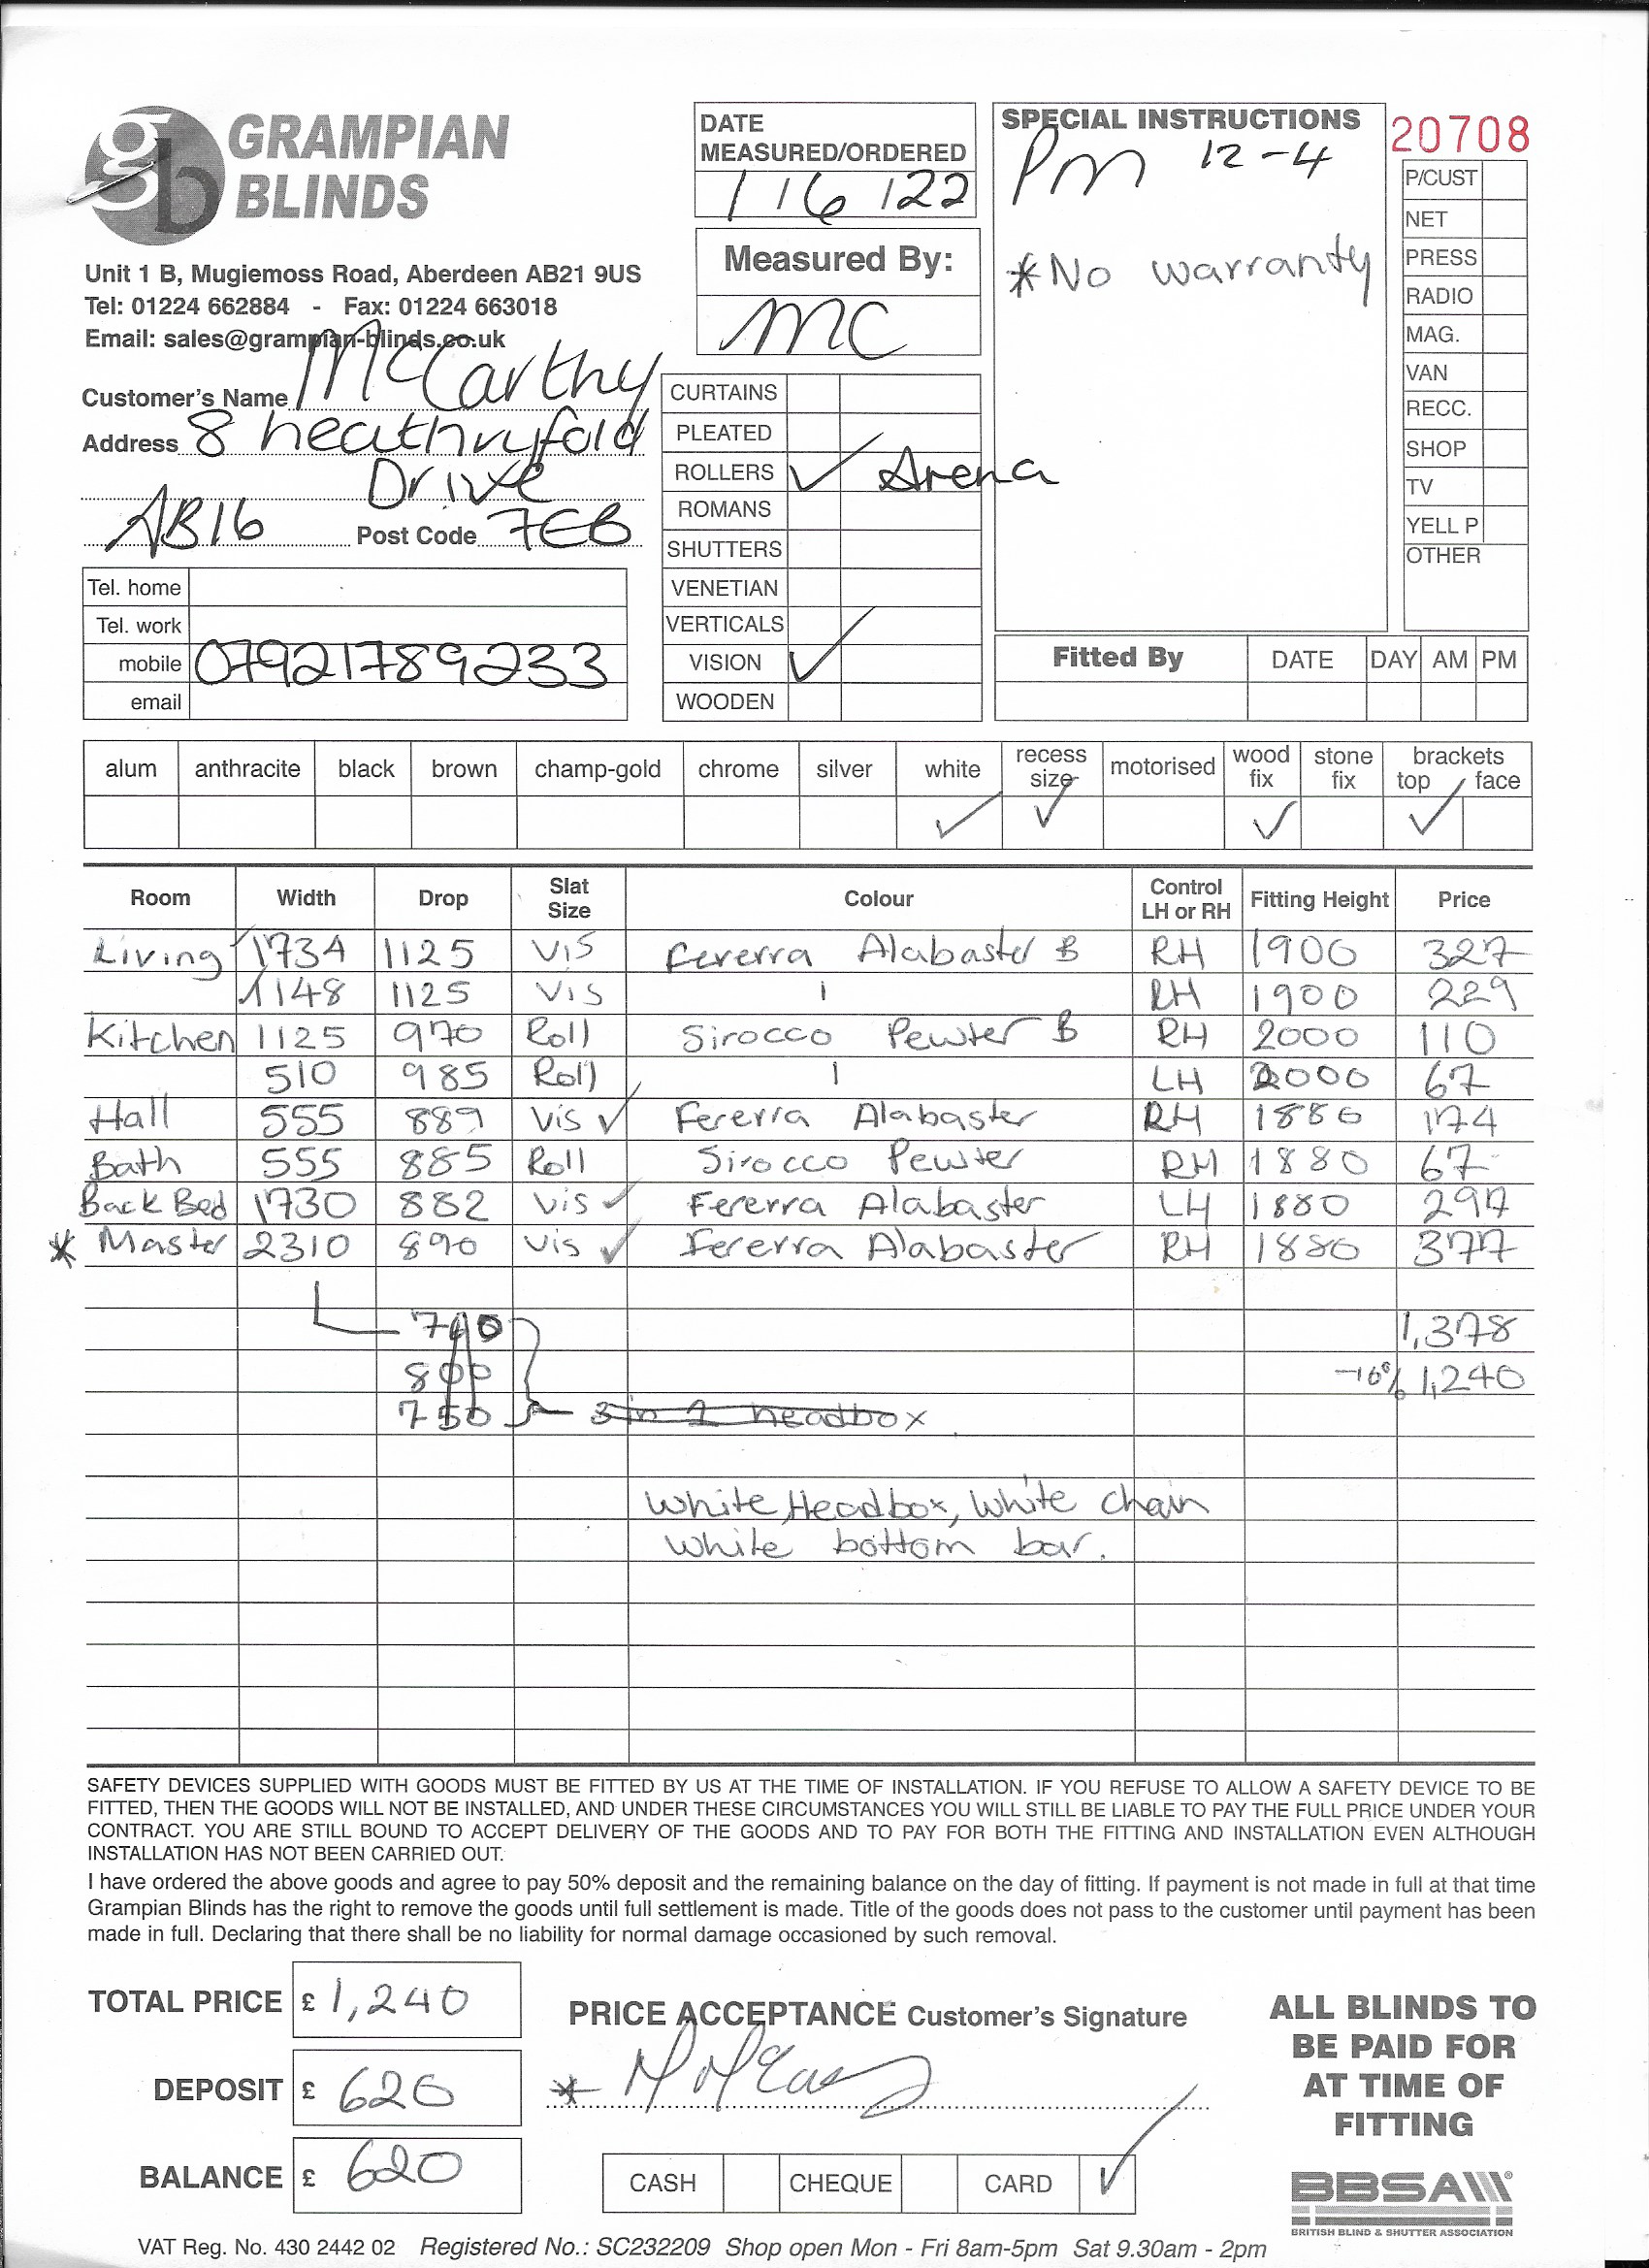 GRAMPIAN
BLINDS
Unit 1 B, Mugiemoss Road, Aberdeen AB21 9US
Tel: 01224 662884 - Fax: 01224 663018
Email: sales@grampian-blinds.co.uk
Customer's Name McCarthy
Address 8 heathryfold
Drive
AB16 Post Code 7EB
Tel. home
Tel. work
mobile 07921789233
email
DATE
MEASURED/ORDERED
1 / 6 / 22
Measured By:
MC
CURTAINS
PLEATED
ROLLERS ✓ Arena
ROMANS
SHUTTERS
VENETIAN
VERTICALS
VISION ✓
WOODEN
SPECIAL INSTRUCTIONS
Pm 12-4
*No warranty
20708
P/CUST
NET
PRESS
RADIO
MAG.
VAN
RECC.
SHOP
TV
YELL P
OTHER
Fitted By DATE DAY AM PM
alum anthracite black brown champ-gold chrome silver white recess size motorised wood fix stone fix brackets top face
✓ ✓ ✓ ✓
Room Width Drop Slat Size Colour Control LH or RH Fitting Height Price
Living 1734 1125 Vis Fererra Alabaster B RH 1900 327
1148 1125 Vis RH 1900 229
Kitchen 1125 970 Roll Sirocco Pewter B RH 2000 110
510 985 Roll LH 2000 67
Hall 555 889 Vis ✓ Fererra Alabaster RH 1880 174
Bath 555 885 Roll Sirocco Pewter RH 1880 67
Back Bed 1730 882 Vis ✓ Fererra Alabaster LH 1880
* Master 2310 890 Vis ✓ Fererra Alabaster RH 1880 377
1,378
800 -10% 1,240
750 3 in 1 headbox
White Headbox, White chain
White bottom bar.
SAFETY DEVICES SUPPLIED WITH GOODS MUST BE FITTED BY US AT THE TIME OF INSTALLATION. IF YOU REFUSE TO ALLOW A SAFETY DEVICE TO BE
FITTED, THEN THE GOODS WILL NOT BE INSTALLED, AND UNDER THESE CIRCUMSTANCES YOU WILL STILL BE LIABLE TO PAY THE FULL PRICE UNDER YOUR
CONTRACT. YOU ARE STILL BOUND TO ACCEPT DELIVERY OF THE GOODS AND TO PAY FOR BOTH THE FITTING AND INSTALLATION EVEN ALTHOUGH
INSTALLATION HAS NOT BEEN CARRIED OUT.
I have ordered the above goods and agree to pay 50% deposit and the remaining balance on the day of fitting. If payment is not made in full at that time
Grampian Blinds has the right to remove the goods until full settlement is made. Title of the goods does not pass to the customer until payment has been
made in full. Declaring that there shall be no liability for normal damage occasioned by such removal.
TOTAL PRICE £ 1,240
DEPOSIT £ 620
BALANCE £ 620
PRICE ACCEPTANCE Customer's Signature
*
CASH CHEQUE CARD ✓
ALL BLINDS TO
BE PAID FOR
AT TIME OF
FITTING
BBSA
BRITISH BLIND & SHUTTER ASSOCIATION
VAT Reg. No. 430 2442 02 Registered No.: SC232209 Shop open Mon - Fri 8am-5pm Sat 9.30am - 2pm